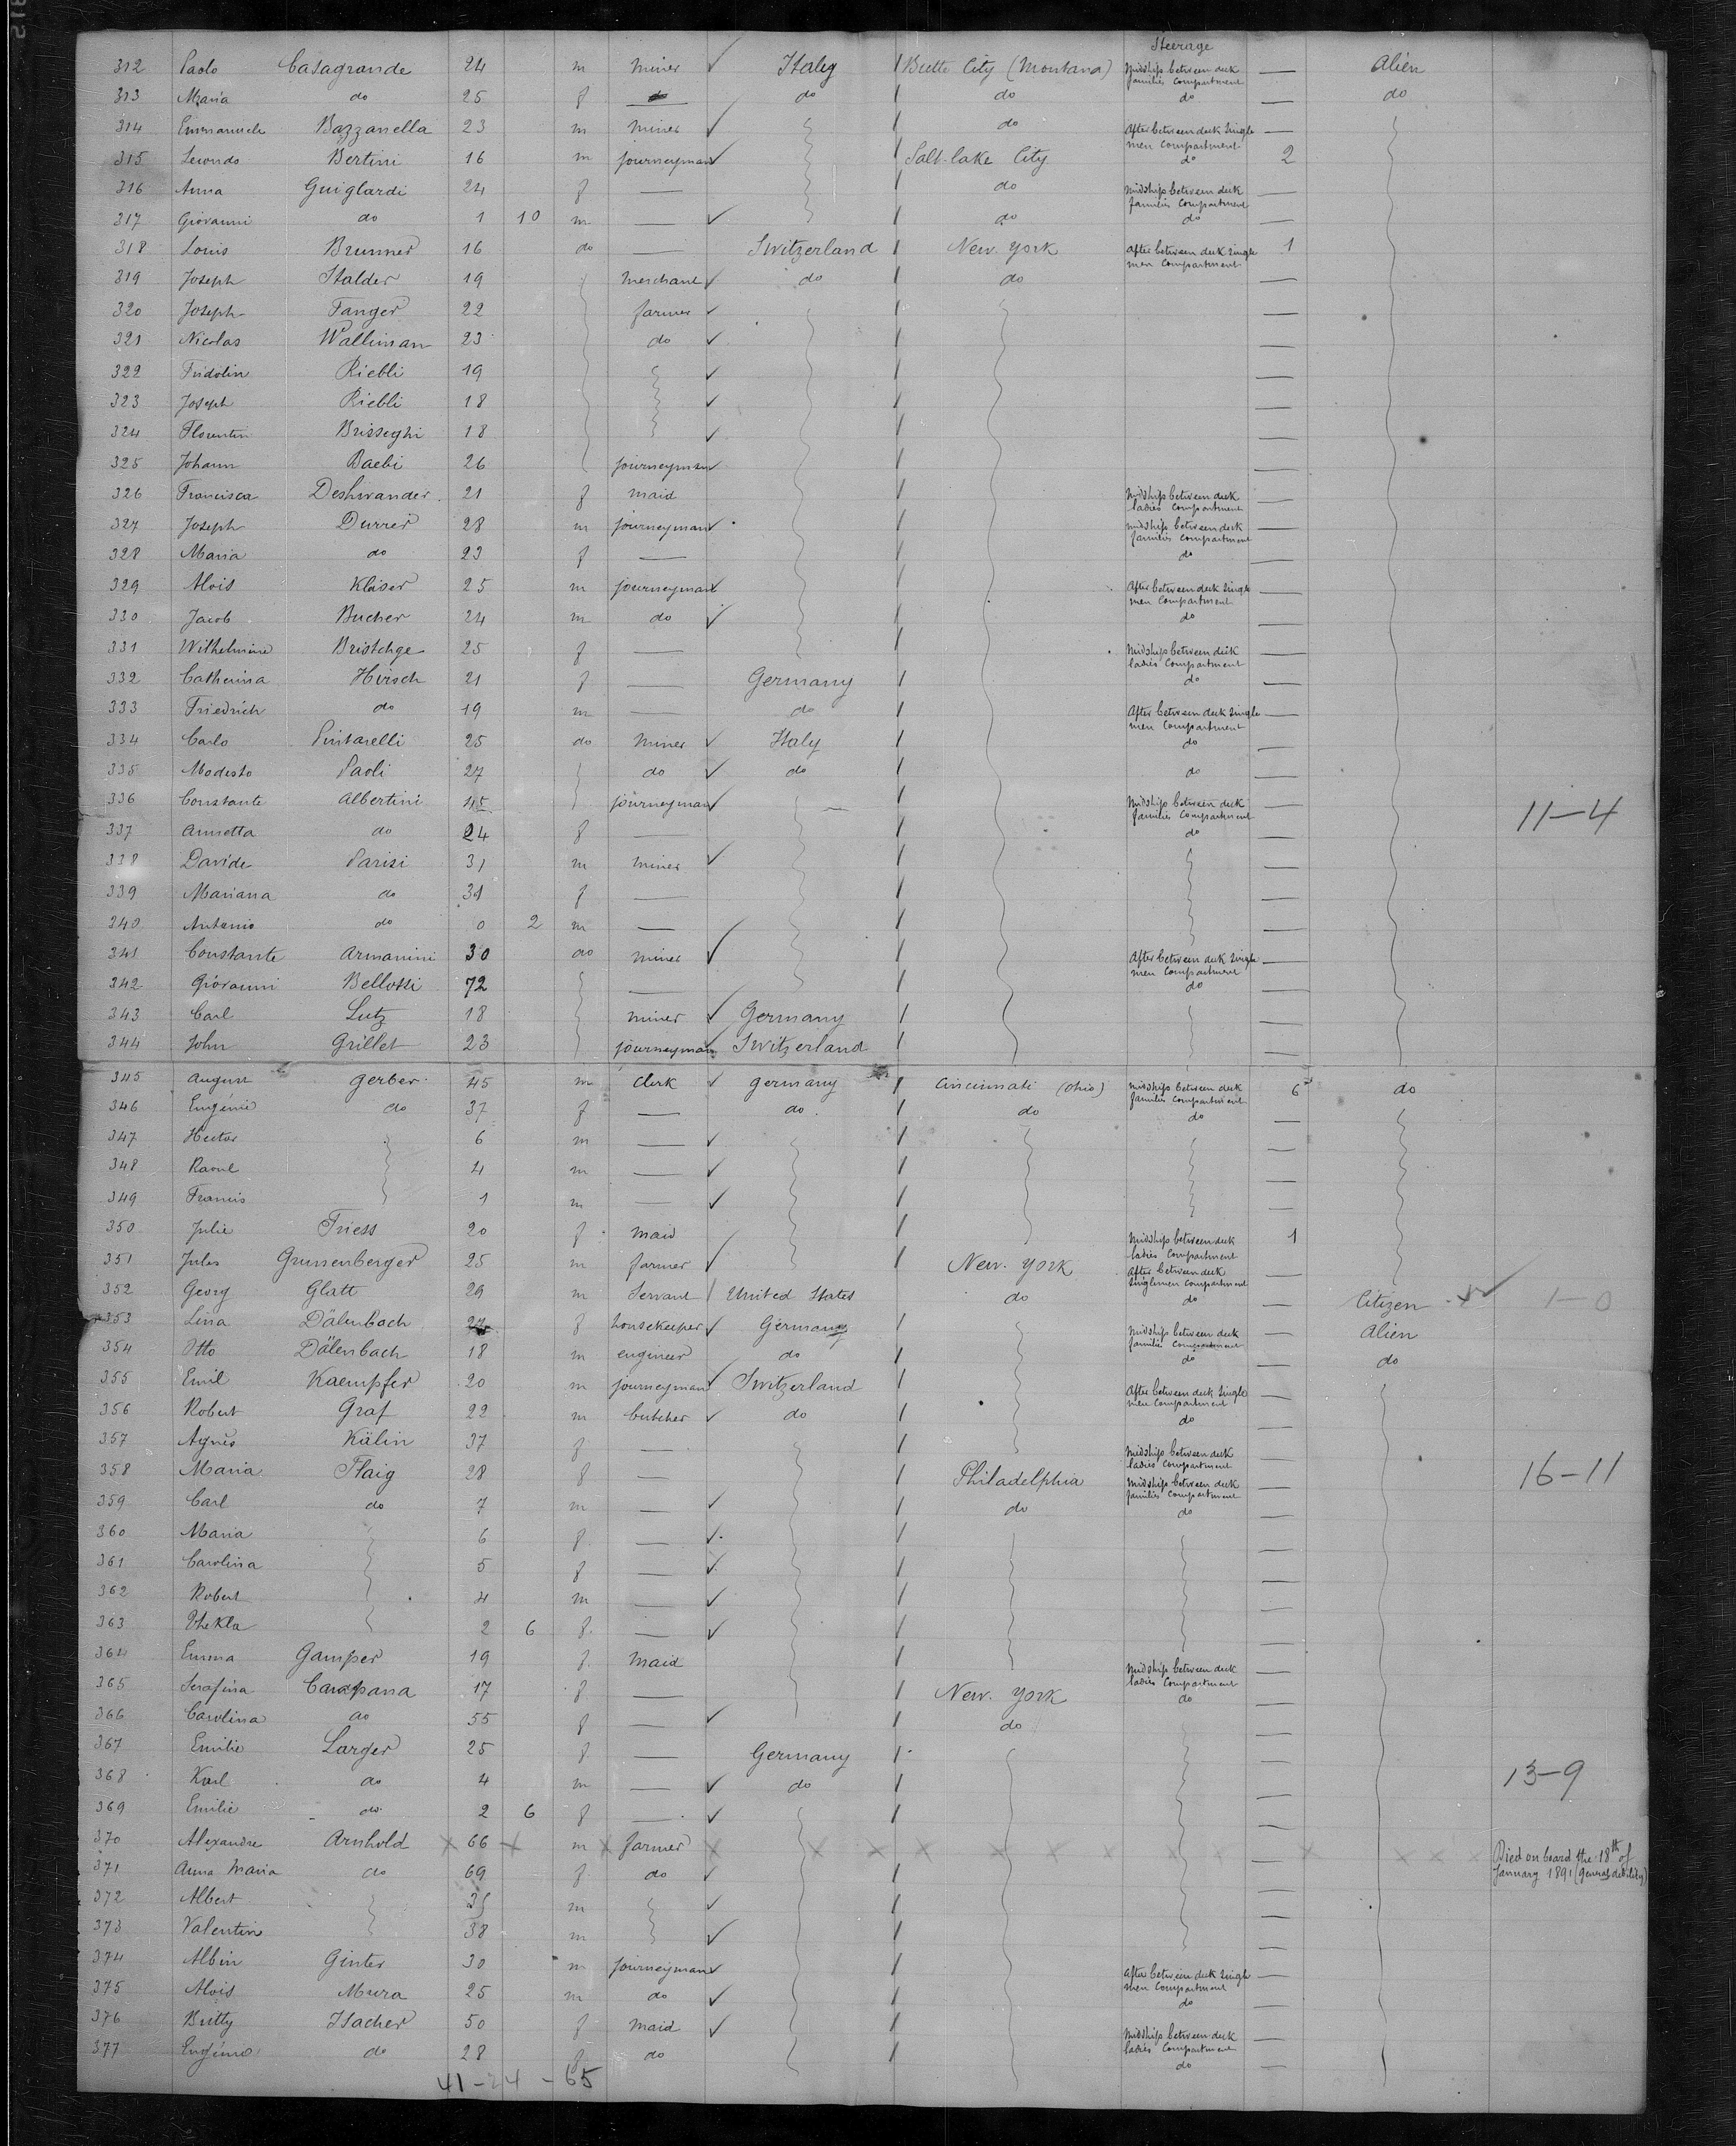 Steerage
312 Paolo Casagrande 24 m miner ✓ Italy / Butte City (Montana) Midship between deck families Compartment — Alien
313 Maria do 25 f do do / do do — do
314 Emmanuele Bazzanella 23 m miner ✓ / do After between deck single men Compartment —
315 Secondo Bertini 16 m journeyman ✓ / Salt-lake City do 2
316 Anna Guiglardi 24 f — / do Midship between deck families Compartment —
317 Giovanni do 1 10 m — ✓ / do do —
318 Louis Brunner 16 do — Switzerland / New York After between deck single men Compartment 1
319 Joseph Stalder 19 merchant ✓ do / do —
320 Joseph Fanger 22 farmer ✓ / —
321 Nicolas Walliman 23 do ✓ / —
322 Fridolin Riebli 19 ✓ / —
323 Joseph Riebli 18 ✓ / —
324 Florentin Brisseghi 18 ✓ / —
325 Johann Baebi 26 journeyman ✓ / —
326 Francisca Deshwander 21 f maid / Midship between deck ladies Compartment —
327 Joseph Durrer 28 m journeyman ✓ / midship between deck families Compartment —
328 Maria do 23 f — / do —
329 Alois Kläser 25 m journeyman ✓ / After between deck single men Compartment —
330 Jacob Bucher 24 m do ✓ / do —
331 Wilhelmine Bristchge 25 f — / Midship between deck ladies Compartment —
332 Catherina Hirsch 21 f — Germany / do —
333 Friedrich do 19 m — do / After between deck single men Compartment —
334 Carlo Pintarelli 25 do miner ✓ Italy / do —
335 Modesto Paoli 27 do ✓ do / do —
336 Constante Albertini 45 journeyman ✓ / Midship between deck families Compartment — 11-4
337 Annetta do 24 f — / do —
338 Davide Parisi 31 m miner ✓ / —
339 Mariana do 31 f — / —
340 Antonio do 0 2 m — / —
341 Constante Armanini 30 do miner ✓ / After between deck single men Compartment —
342 Giovanni Bellotti 72 — / do —
343 Carl Lutz 18 miner ✓ Germany / —
344 John Grillet 23 journeyman ✓ Switzerland / —
345 August Gerber 45 m clerk ✓ Germany / Cincinnati (Ohio) Midship between deck families Compartment 6 do
346 Eugénie do 37 f — do / do do —
347 Hector 6 m — ✓ / —
348 Raoul 4 m — ✓ / —
349 Francis 1 m — ✓ / —
350 Julie Friess 20 f maid / Midship between deck ladies Compartment 1
351 Jules Grunenberger 25 m farmer ✓ / New York After between deck singlemen Compartment —
352 Georg Glatt 29 m Servant / United States do do — Citizen ✓ 1-0
353 Lina Dälenbach f housekeeper ✓ Germany / Midship between deck families Compartment — Alien
354 Otto Dälenbach 18 m engineer do / do — do
355 Emil Kaempfer 20 m journeyman ✓ Switzerland / After between deck single men Compartment —
356 Robert Graf 22 m butcher ✓ do / do —
357 Agnès Kälin 37 f — / Midship between deck ladies Compartment —
358 Maria Flaig 28 f — / Philadelphia Midship between deck families Compartment — 16-11
359 Carl do 7 m — ✓ / do do —
360 Maria 6 f — ✓ / —
361 Carolina 5 f — ✓ / —
362 Robert 4 m — ✓ / —
363 Thekla 2 6 f — ✓ / —
364 Emma Gamper 19 f maid / Midship between deck ladies Compartment —
365 Serafina Carapana 17 f — / New York do —
366 Carolina do 55 f — ✓ / do —
367 Emilie Larger 25 f — Germany / —
368 Karl do 4 m — ✓ do / — 13-9
369 Emilie do 2 6 f — ✓ / —
370 Alexandre Arnhold x 66 x m x farmer x x x x x x x x x x x x Died on board the 18th of January 1891 (general debility)
371 Anna Maria do 69 f do ✓ / —
372 Albert m ✓ / —
373 Valentin 38 m ✓ / —
374 Albin Ginter 30 m journeyman ✓ / After between deck single men Compartment —
375 Alois Mura 25 m do ✓ / do —
376 Buitty Isacher 50 f maid ✓ / Midship between deck ladies Compartment —
377 Eugénie do 28 f do / do —
41-24-65